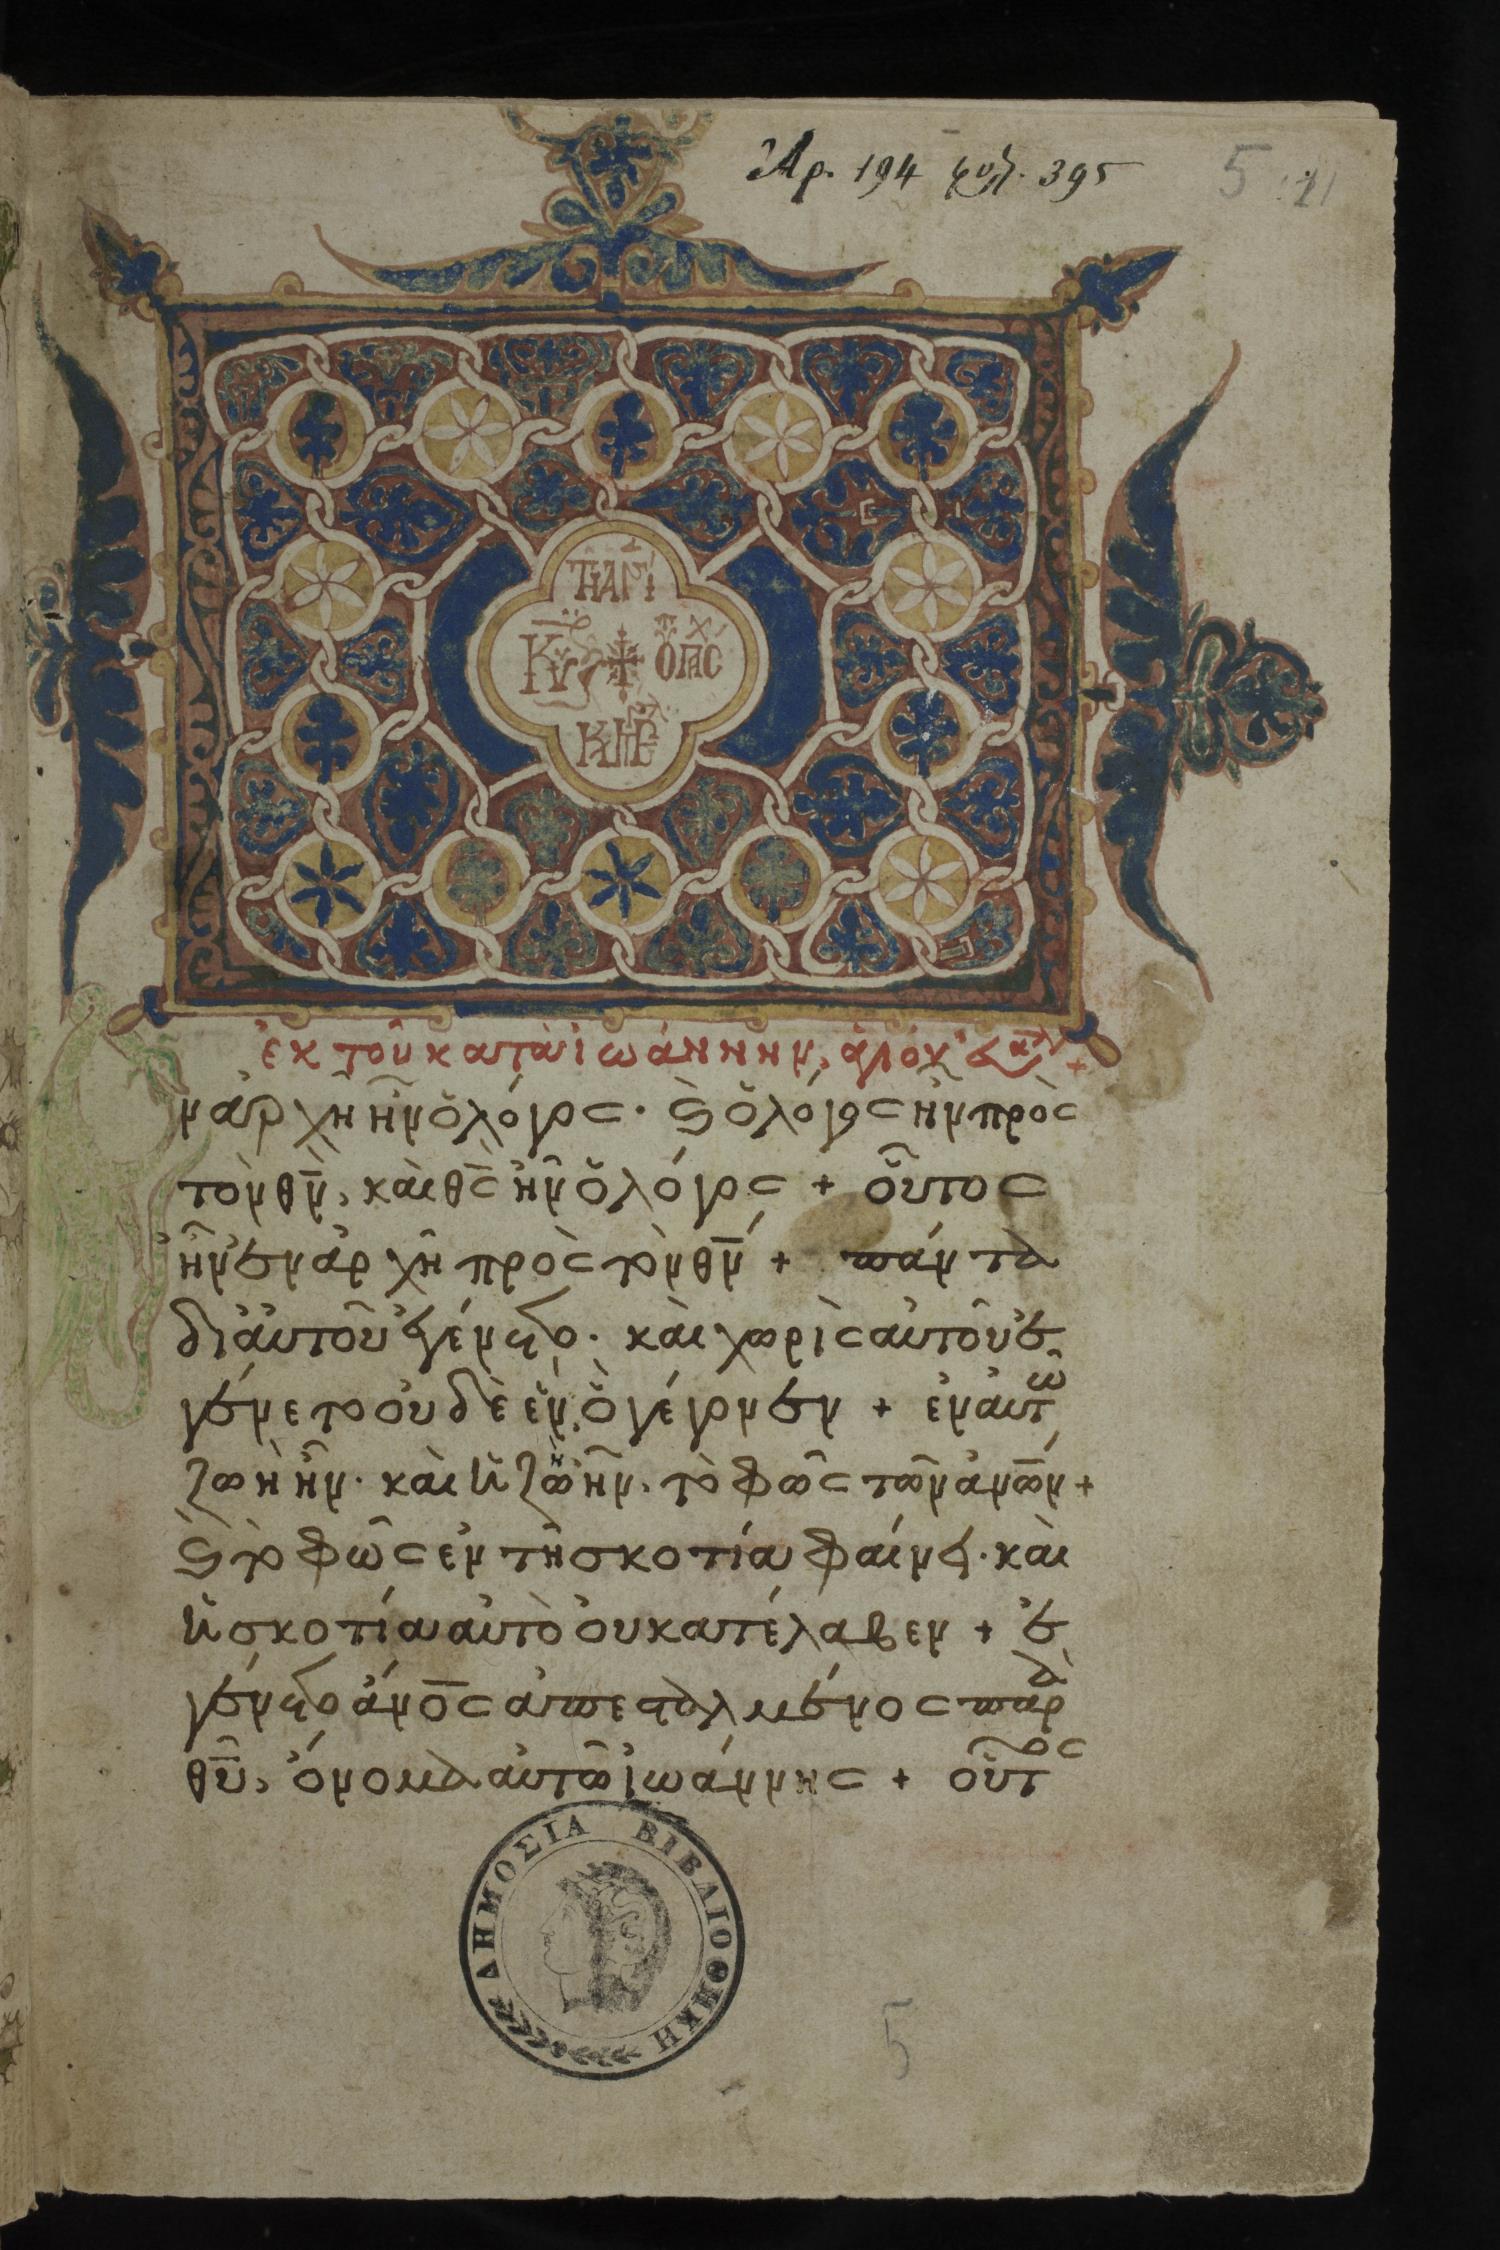 Ἀρ. 194 φυλ. 395
5
Τῆ ἁγί
Κυ
κυρ
ἐκ τοῦ κατὰ ἰωάννην, ἁγίου
ν ἀρχῆ ἦν ὁ λόγος. καὶ ὁ λόγος ἦν πρὸς
τὸν θν̄, καὶ θς̄ ἦν ὁ λόγος + οὗτος
ἦν ἐν ἀρχῆ πρὸς τὸν θν̄ + πάντα
δι' αὐτοῦ ἐγένετο. καὶ χωρὶς αὐτοῦ ἐ
γένετο οὐδὲ ἕν, ὃ γέγονεν + ἐν αὐτῶ
ζωὴ ἦν. καὶ ἡ ζωὴ ἦν, τὸ φῶς τῶν ἀνῶν +
καὶ τὸ φῶς ἐν τῆ σκοτία φαίνει. καὶ
ἡ σκοτία αὐτὸ οὐ κατέλαβεν + ἐ
γένετο ἄνο̄ς ἀπεσταλμένος παρὰ
θῡ, ὄνομα αὐτῶ ἰωάννης + οὗτος
ΔΗΜΟΣΙΑ ΒΙΒΛΙΟΘΗΚΗ
5